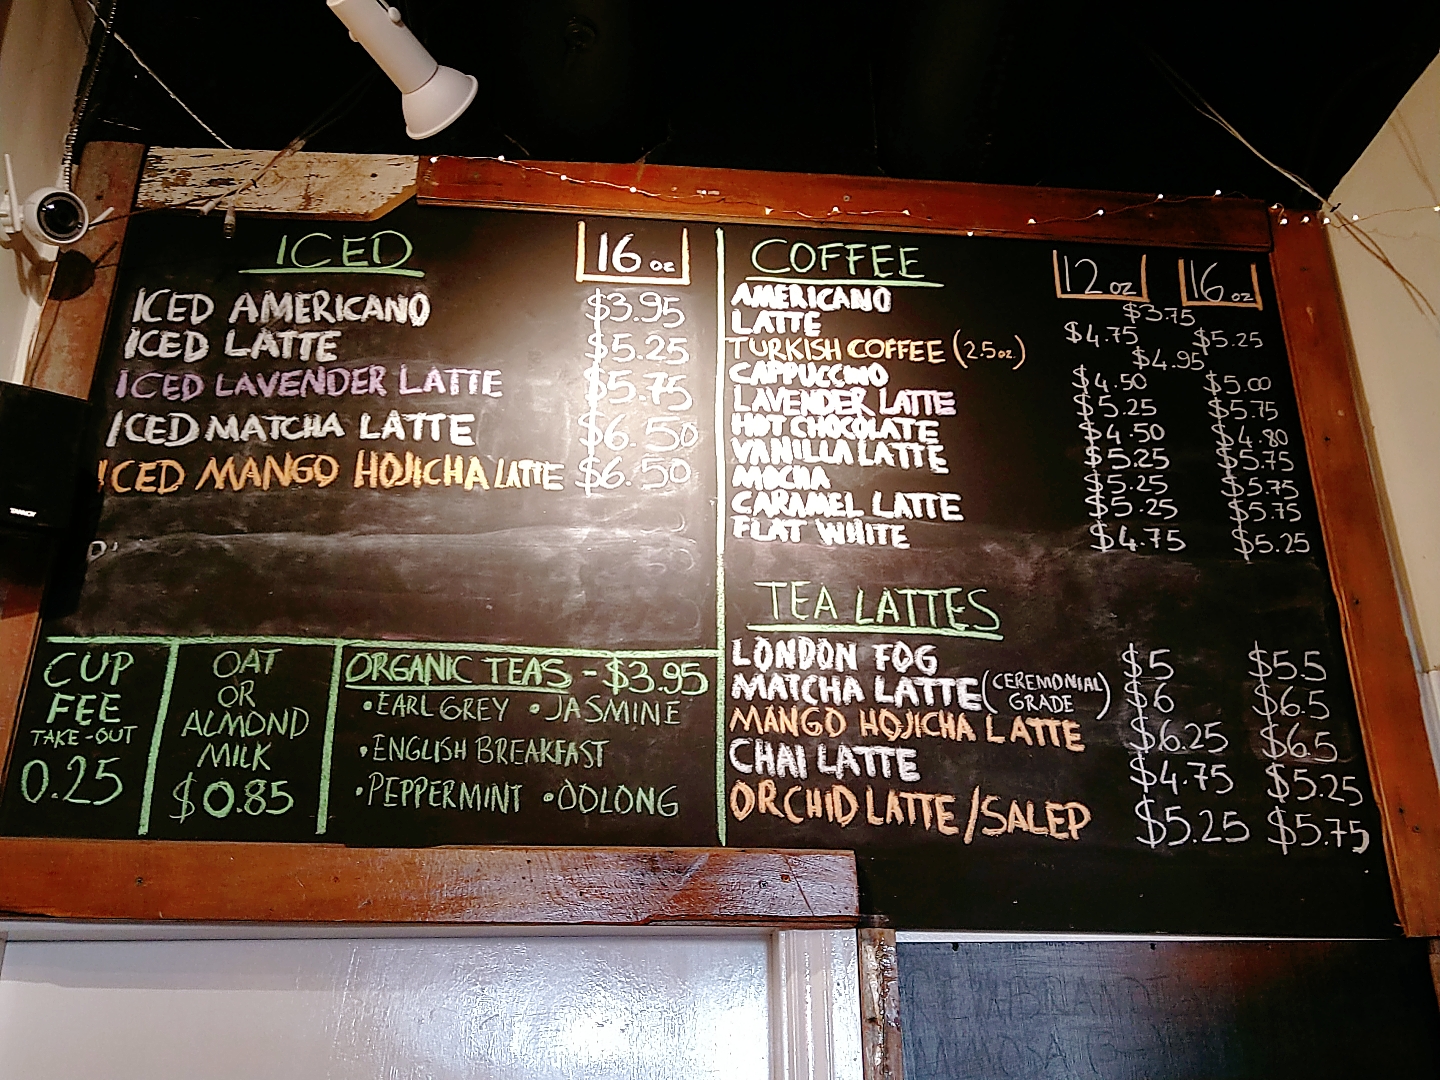 ICED 16 oz
ICED AMERICANO $3.95
ICED LATTE $5.25
ICED LAVENDER LATTE $5.75
ICED MATCHA LATTE $6.50
ICED MANGO HOJICHA LATTE $6.50
CUP
FEE
TAKE-OUT
0.25
OAT
OR
ALMOND
MILK
$0.85
ORGANIC TEAS - $3.95
• EARL GREY • JASMINE
• ENGLISH BREAKFAST
• PEPPERMINT • OOLONG
COFFEE 12 oz 16 oz
AMERICANO $3.75
LATTE $4.75 $5.25
TURKISH COFFEE (2.5oz.) $4.95
CAPPUCCINO $4.50 $5.00
LAVENDER LATTE $5.25 $5.75
HOT CHOCOLATE $4.50 $4.80
VANILLA LATTE $5.25 $5.75
MOCHA $5.25 $5.75
CARAMEL LATTE $5.25 $5.75
FLAT WHITE $4.75 $5.25
TEA LATTES
LONDON FOG $5 $5.5
MATCHA LATTE (CEREMONIAL GRADE) $6 $6.5
MANGO HOJICHA LATTE $6.25 $6.5
CHAI LATTE $4.75 $5.25
ORCHID LATTE / SALEP $5.25 $5.75
TANNOY